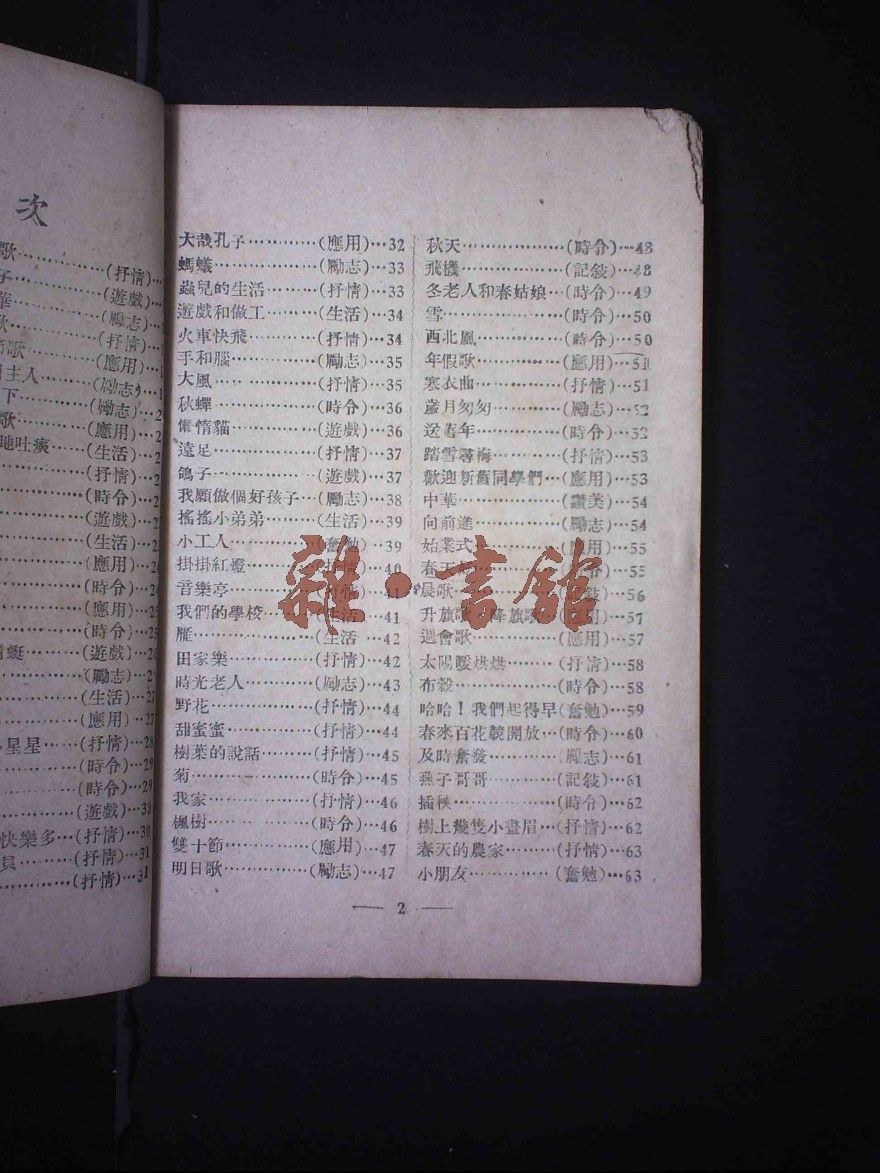 次
歌…………(抒情)…
(遊戲)…
(勵志)…
(抒情)…
節歌………(應用)…
主人……(勵志)
下………(勵志)…2
歌………(應用)…2
地吐痰…(生活)…2
(抒情)…
(時令)…
(遊戲)…2
(生活)…23
(應用)…24
(時令)…
(應用)…25
(時令)…25
蜻蜓………(遊戲)…26
(勵志)…
(生活)…27
(應用)…27
星星……(抒情)…28
(時令)…29
(時令)…29
(遊戲)…30
快樂多…(抒情)…30
(抒情)…31
(抒情)…31
大哉孔子…………(應用)…32
螞蟻………………(勵志)…33
蟲兒的生活………(抒情)…33
遊戲和做工………(生活)…34
火車快飛…………(抒情)…34
手和腦……………(勵志)…35
大風………………(抒情)…35
秋蟬………………(時令)…36
懶惰貓……………(遊戲)…36
遠足………………(抒情)…37
鴿子………………(遊戲)…37
我願做個好孩子…(勵志)…38
搖搖小弟弟………(生活)…39
小工人……………(奮勉)…39
掛掛紅燈…………(抒情)…40
音樂亭……………(抒情)…41
我們的學校………(生活)…41
雁…………………(生活)…42
田家樂……………(抒情)…42
時光老人…………(勵志)…43
野花………………(抒情)…44
甜蜜蜜……………(抒情)…44
樹葉的說話………(抒情)…45
菊…………………(時令)…45
我家………………(抒情)…46
楓樹………………(時令)…46
雙十節……………(應用)…47
明日歌……………(勵志)…47
秋天………………(時令)…48
飛機………………(記敍)…48
冬老人和春姑娘…(時令)…49
雪…………………(時令)…50
西北風……………(時令)…50
年假歌……………(應用)…51
寒衣曲……………(抒情)…51
歲月匆匆…………(勵志)…52
送舊年……………(時令)…52
踏雪尋梅…………(抒情)…53
歡迎新舊同學們…(應用)…53
中華………………(讚美)…54
向前進……………(勵志)…54
始業式……………(應用)…55
春天………………(時令)…55
晨歌………………(記敍)…56
升旗歌 降旗歌…(應用)…57
週會歌……………(應用)…57
太陽暖烘烘………(抒情)…58
布穀………………(時令)…58
哈哈！我們起得早(奮勉)…59
春來百花競開放…(時令)…60
及時奮發…………(勵志)…61
燕子哥哥…………(記敍)…61
插秧………………(時令)…62
樹上幾隻小畫眉…(抒情)…62
春天的農家………(抒情)…63
小朋友……………(奮勉)…63
— 2 —
雜·書館